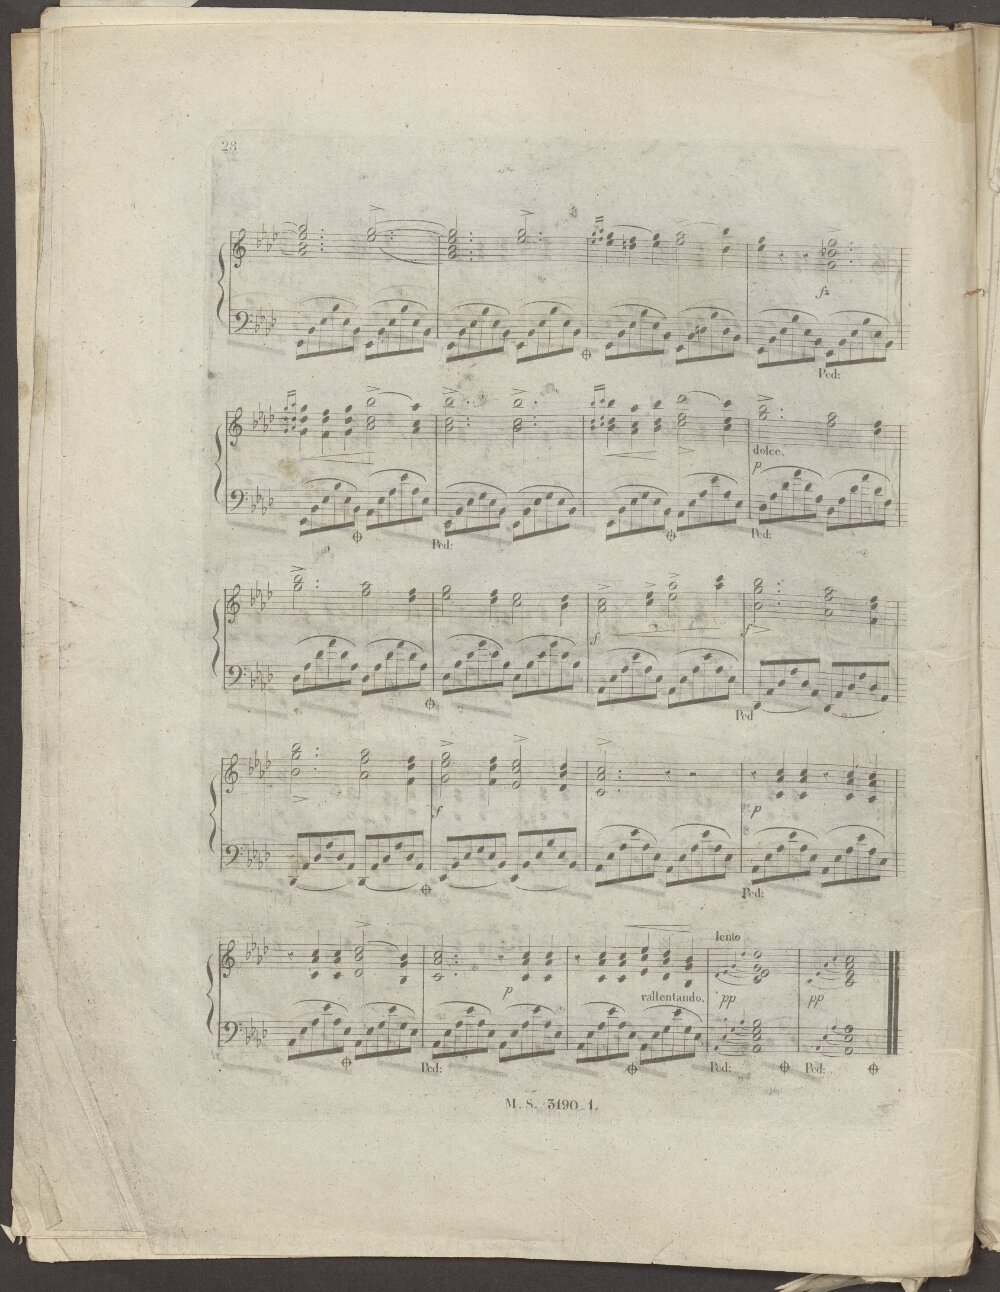 28
fz
Ped:
dolce.
p
Ped:
Ped:
f
f
Ped
f
p
Ped:
lento
p
rallentando.
pp
pp
Ped:
Ped:
Ped:
M. S. 3190_1.